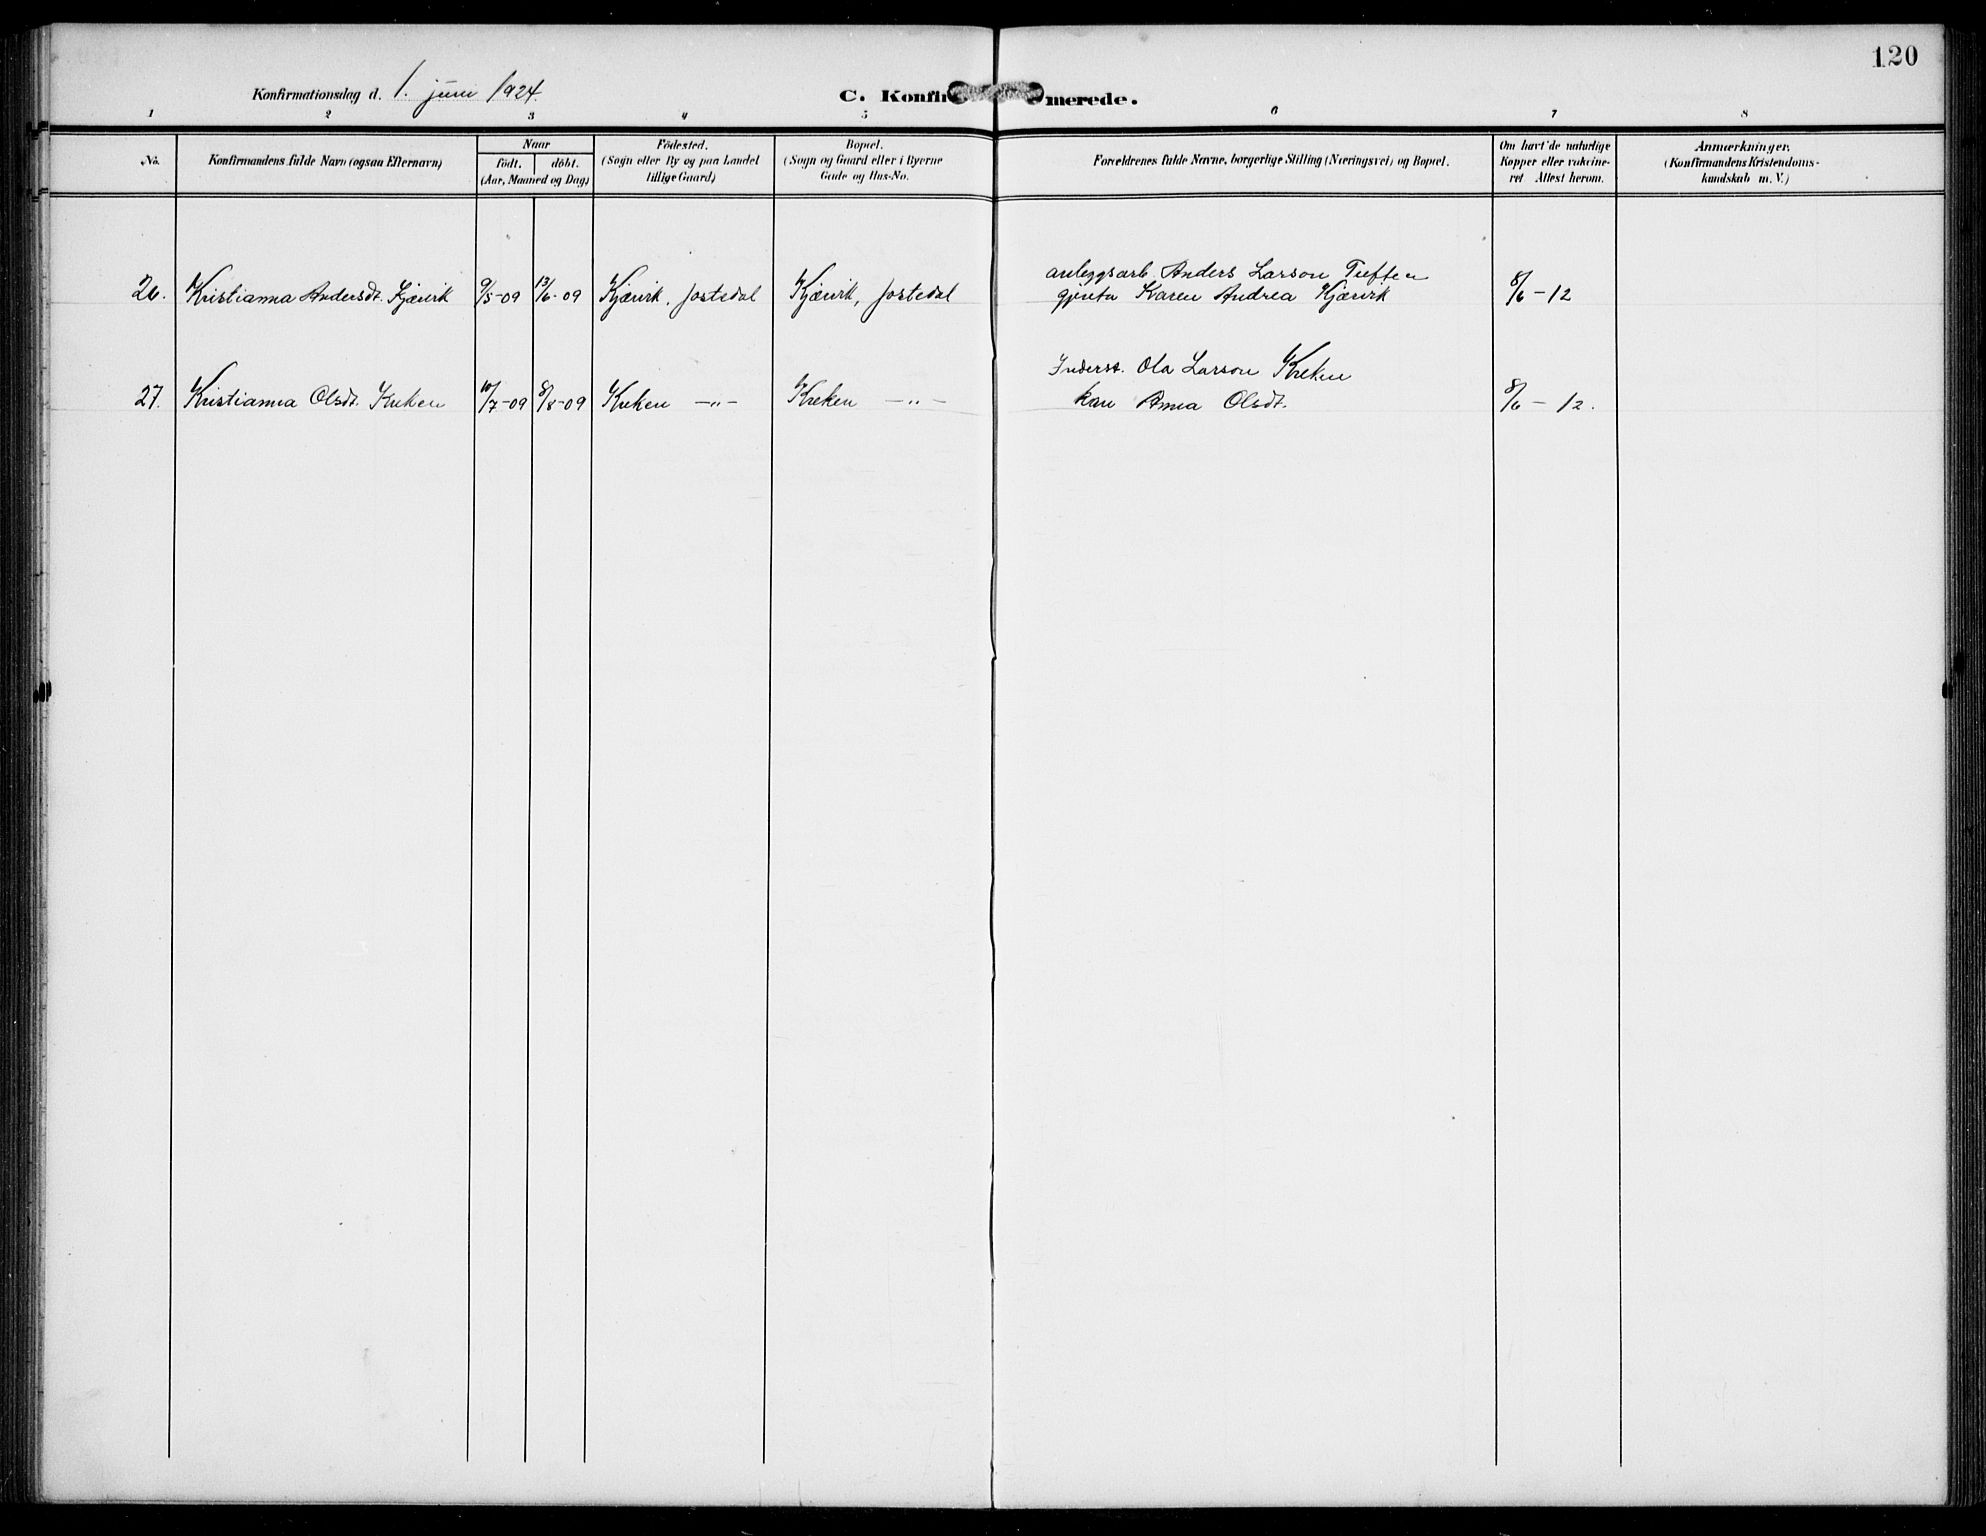 120
Konfirmationsdag d. 1. juni 1924.
C. Konfir merede.
1 2 3 4 5 6 7 8
No.
Konfirmandens fulde Navn (ogsaa Efternavn)
Naar
födt. döbt.
(Aar, Maaned og Dag)
Födested.
(Sogn eller By og paa Landet
tillige Gaard)
Bopæl.
(Sogn og Gaard eller i Byerne
Gade og Hus-No.
Forældrenes fulde Navne, borgerlige Stilling (Næringsvei) og Bopæl.
Om havt de naturlige
Kopper eller vakcine-
ret Attest herom.
Anmærkninger.
(Konfirmandens Kristendoms-
kundskab m. V.)
anleggsarb. Anders Larson Tuften
26. Kristianna Andersdt. Kjærvik 9/5-09 13/6-09 Kjærvik, Jostedal Kjærvik, Jostedal gjenta Karen Andrea Kjærvik 8/6-12
Inderst. Ola Larson Kreken
27. Kristianna Olsdt. Kreken 10/7-09 8/8-09 Kreken -"- Kreken -"- kån Anna Olsdt. 8/6-12.